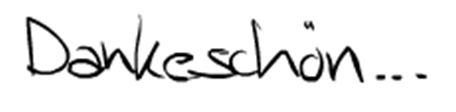 Dankeschön...